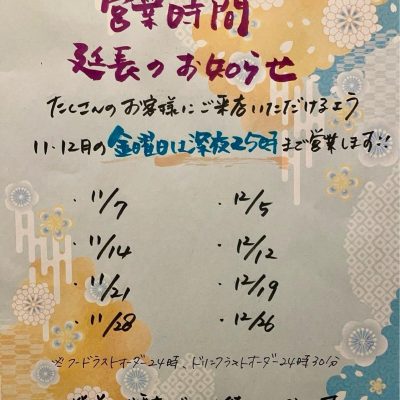 営業時間
延長のお知らせ
たくさんのお客様にご来店いただけるよう
11・12月の金曜日は深夜25時まで営業します!!
・11/7
・12/5
・11/14
・12/12
・11/21
・12/19
・11/28
・12/26
※フードラストオーダー24時、ドリンクラストオーダー24時30分